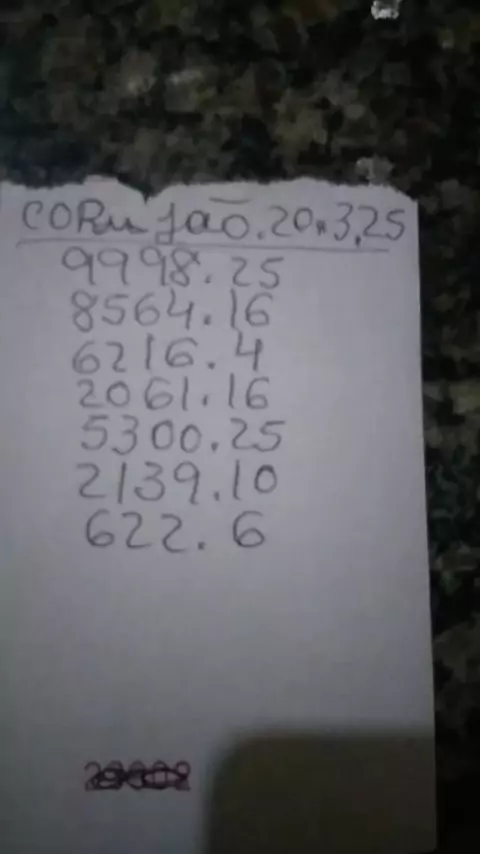 CORujão.20.3.25
9998.25
8564.16
6216.4
2061.16
5300.25
2139.10
622.6